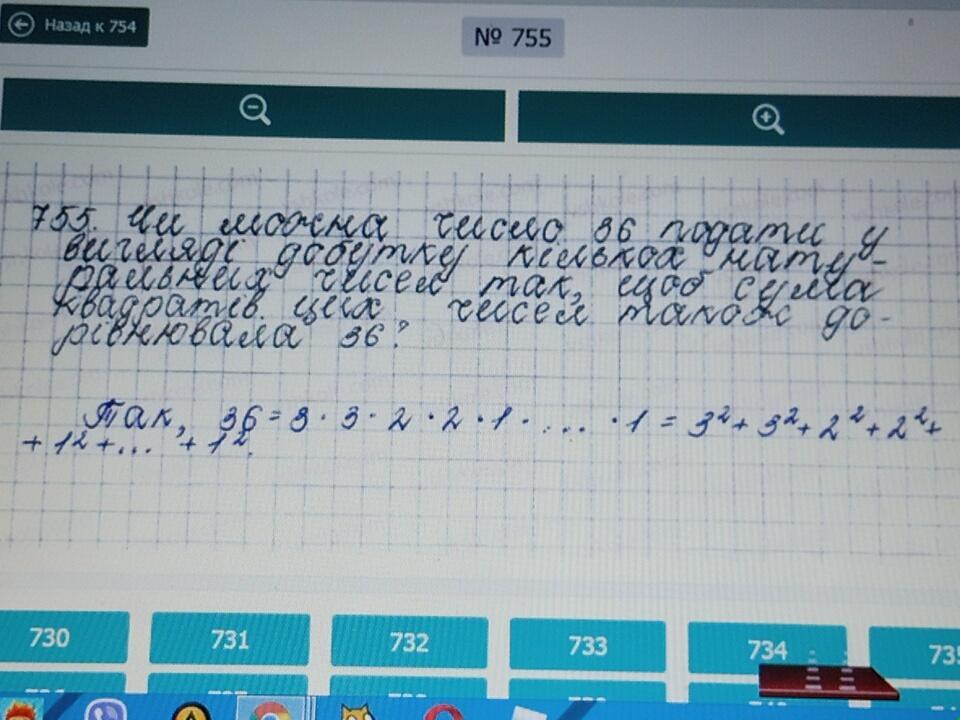 Назад к 754
№ 755
755. Чи можна число 36 подати у
вигляді добутку кількох нату-
ральних чисел так, щоб сума
квадратів цих чисел також до-
рівнювала 36?
Так, 36 = 3 · 3 · 2 · 2 · 1 · ... · 1 = 3² + 3² + 2² + 2² +
+ 1² + ... + 1².
730
731
732
733
734
735